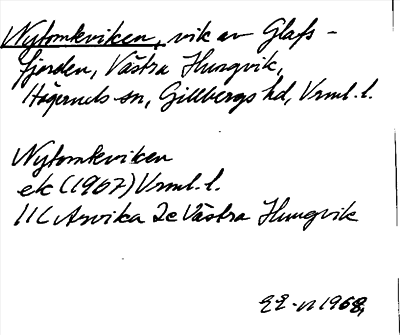 Nytomkviken, vik av Glafs-
fjorden, Västra Hungvik,
Högeruds sn, Gillbergs hd, Vrml. l.
Nytomkviken
ek (1967) Vrml. l.
11C Arvika 2c Västra Hungvik
1968